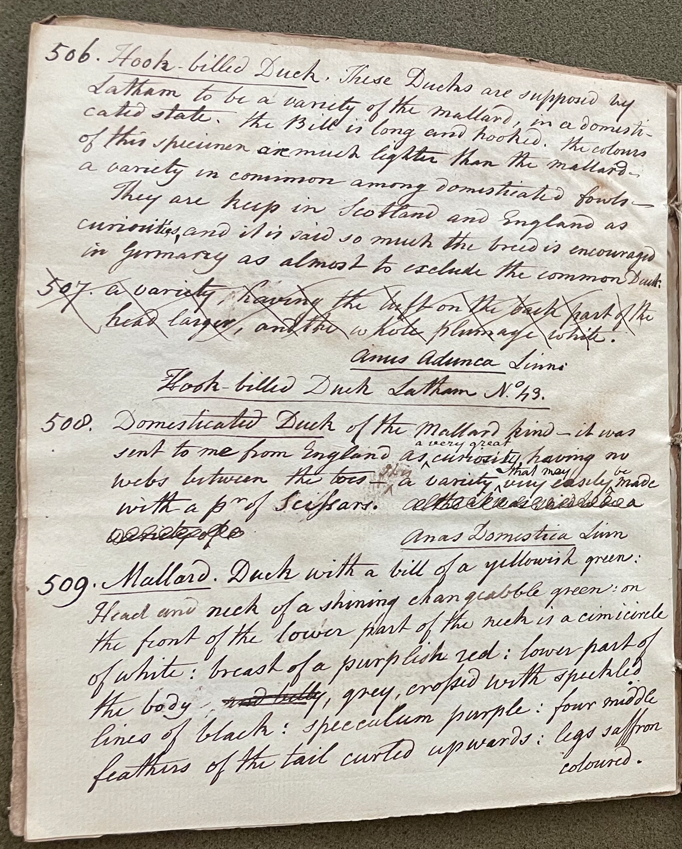 506. Hook-billed Duck. These Ducks are supposed by
Latham to be a variety of the mallard, in a domesti-
cated state. the Bill is long and hooked. the colours
of this specimen are much lighter than the mallard-
a variety in common among domesticated fowls—
They are keep in Scotland and England as
curiosities, and it is said so much the breed is encouraged
in Germany as almost to exclude the common Duck.
507. a variety having the tuft on the back part of the
head larger, and the whole plumage white.
Anus Adunca Linn:
Hook-billed Duck Latham No. 43.
508. Domesticated Duck of the Mallard kind—it was
a very great
sent to me from England as curiosity, having no
webs between the toes — a variety that may very easily be made
with a pr of Scissars. a
Anas Domestica Linn
509. Mallard. Duck with a bill of a yellowish green:
Head and neck of a shining changeable green: on
the front of the lower part of the neck is a cimicircle
of white: breast of a purplish red: lower part of
the body and belly, grey, crossed with speckled
lines of black: specculum purple: four middle
feathers of the tail curled upwards: legs saffron
coloured.